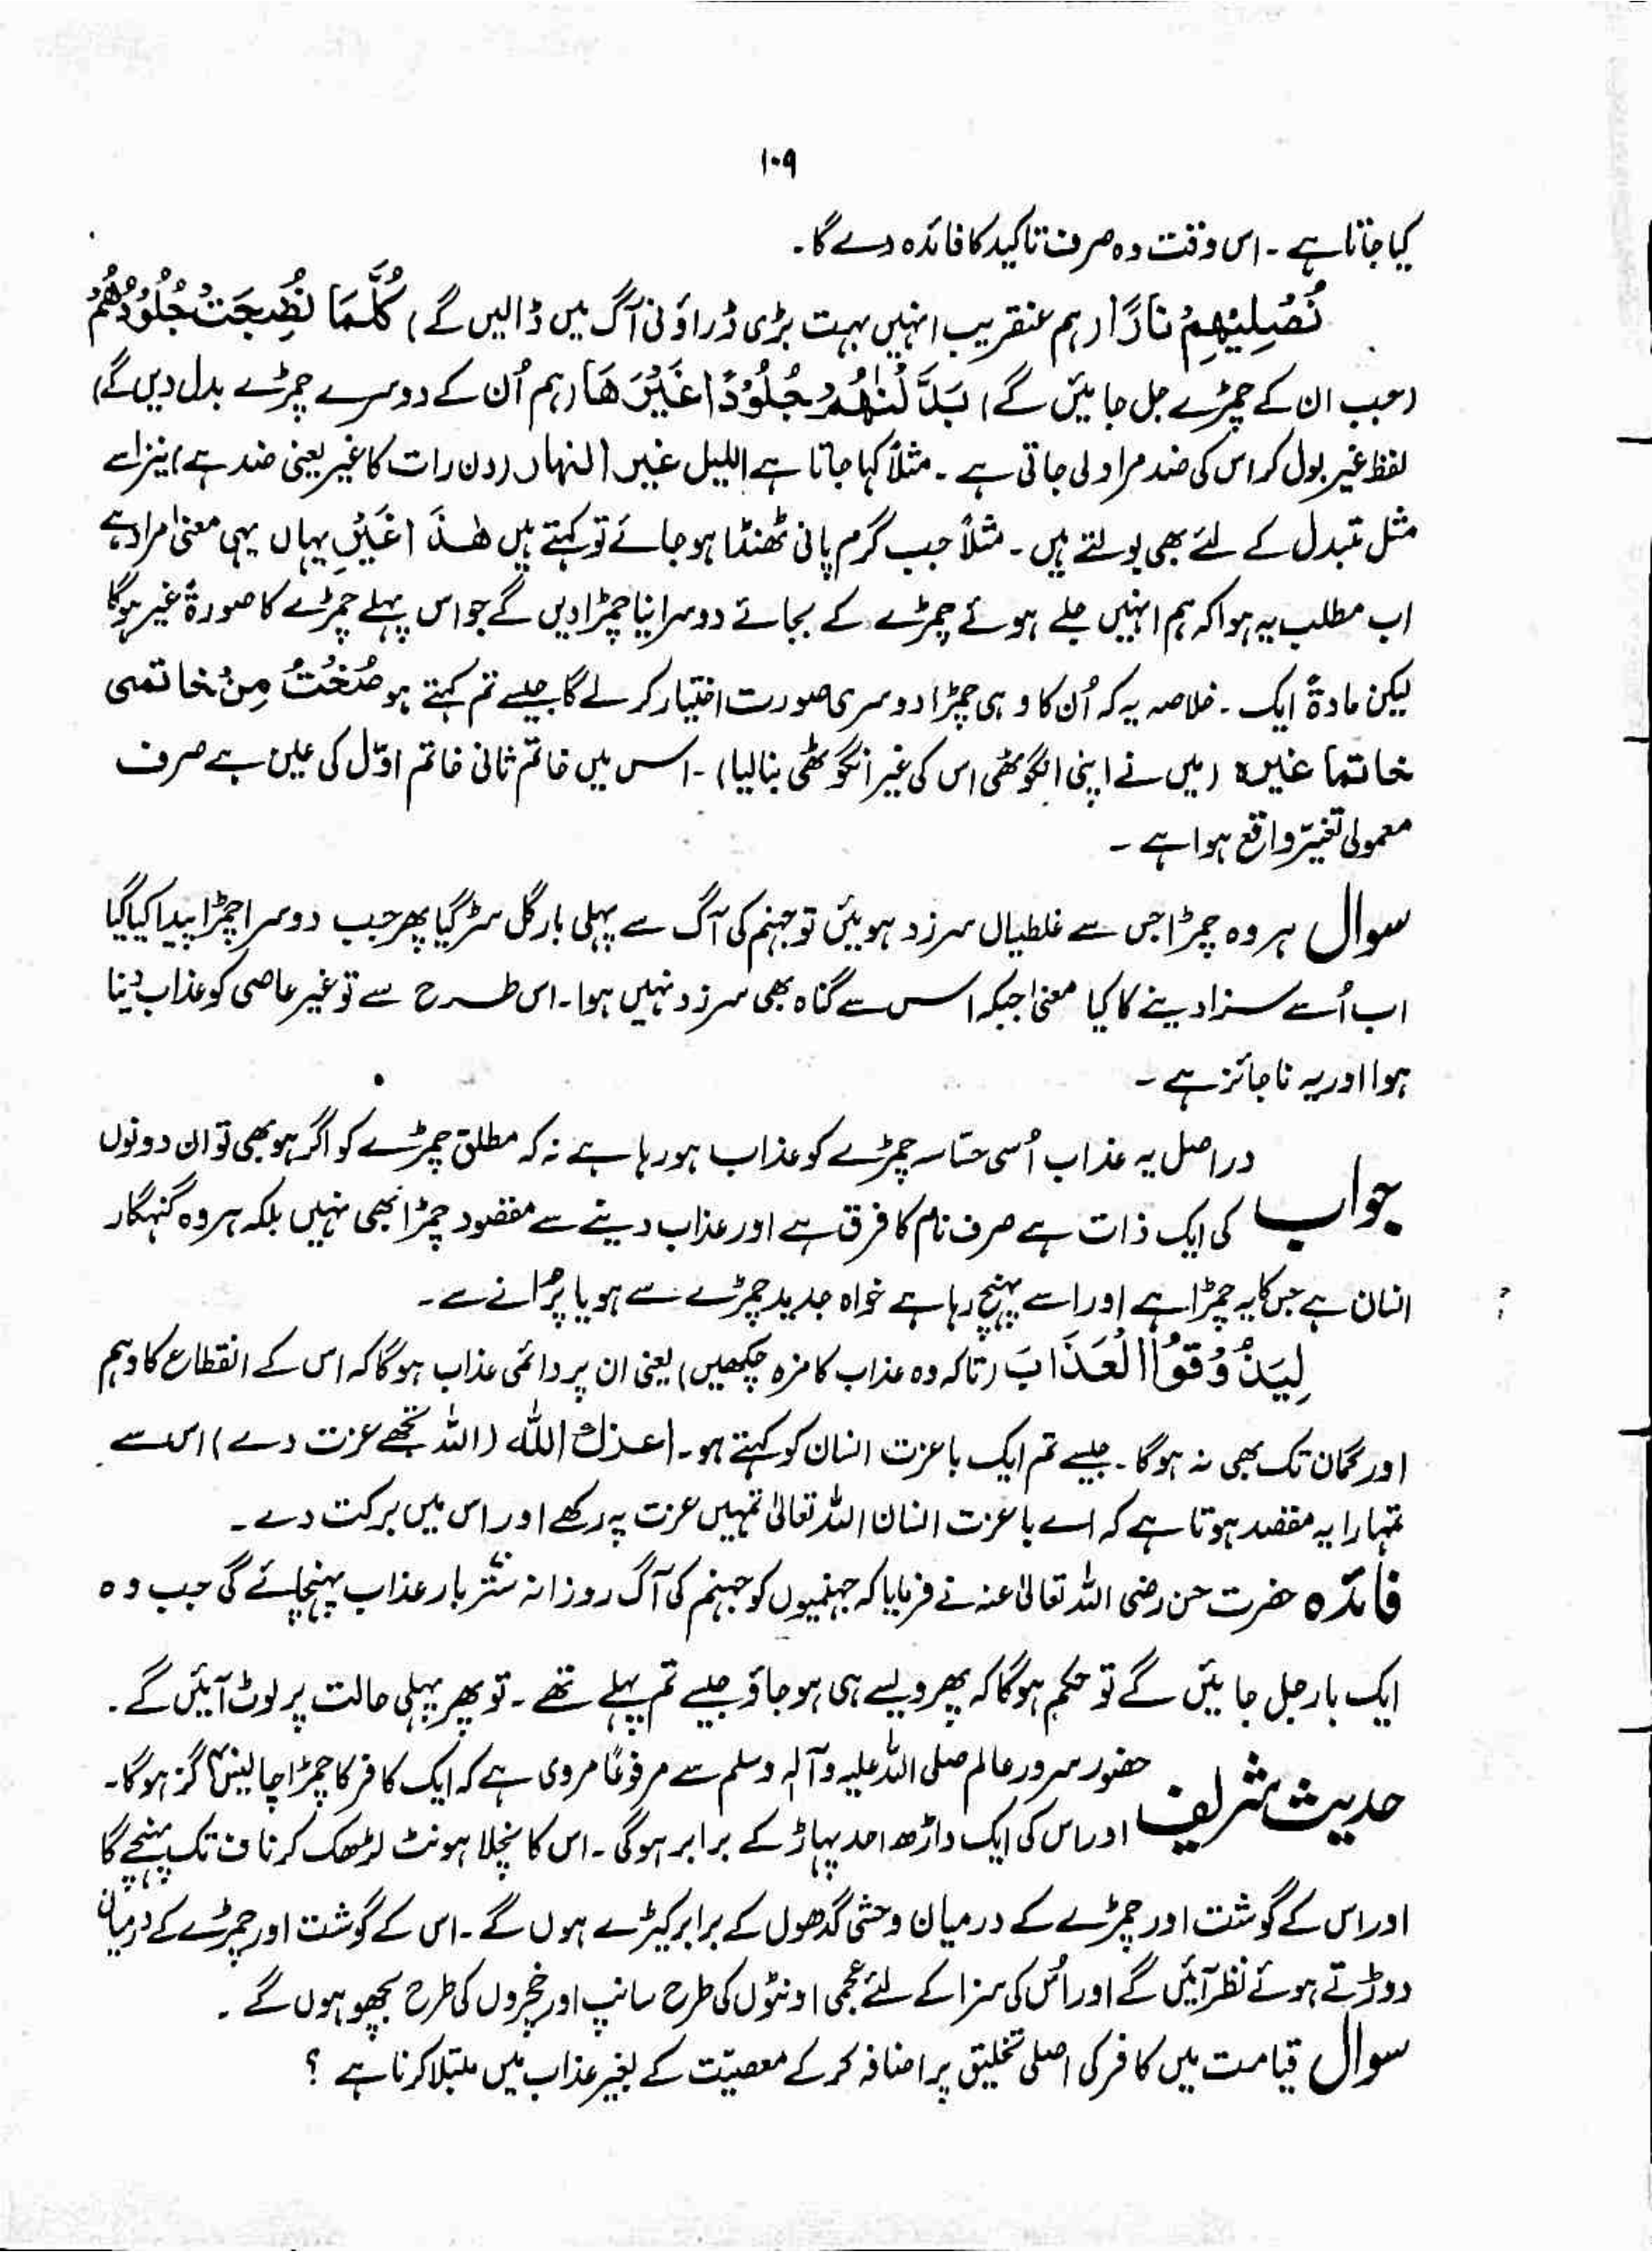 ۱۰۹
کیا جاتا ہے ۔ اس وقت وہ صرف تاکید کا فائدہ دے گا۔
نُصْلِیْهِمْ نَارًا (ہم عنقریب انہیں بہت بڑی ڈراؤنی آگ میں ڈالیں گے) كُلَّمَا نَضِجَتْ جُلُوْدُهُمْ
(جب ان کے چمڑے جل جائیں گے) بَدَّلْنٰهُمْ جُلُوْدًا غَیْرَهَا (ہم اُن کے دوسرے چمڑے بدل دیں گے)
لفظ غیر بول کر اس کی ضد مراد لی جاتی ہے ۔ مثلاً کہا جاتا ہے اللیل غیر النهار (دن رات کا غیر یعنی ضد ہے) نیز اسے
مثل متبدل کے لئے بھی بولتے ہیں ۔ مثلاً جب گرم پانی ٹھنڈا ہو جائے تو کہتے ہیں هٰذَا غَیْرِ یہاں یہی معنٰی مراد ہے
اب مطلب یہ ہوا کہ ہم انہیں جلے ہوئے چمڑے کے بجائے دوسرا نیا چمڑا دیں گے جو اس پہلے چمڑے کا صورۃً غیر ہوگا
لیکن مادۃً ایک ۔ خلاصہ یہ کہ اُن کا وہی چمڑا دوسری صورت اختیار کر لے گا جیسے تم کہتے ہو صُغْتُ مِنْ خاتمی
خاتما غیرہ (میں نے اپنی انگوٹھی اس کی غیر انگوٹھی بنا لیا) ۔ اس میں خاتم ثانی خاتم اوّل کی عین ہے صرف
معمولی تغیّر واقع ہوا ہے ۔
سوال ہر وہ چمڑا جس سے غلطیاں سرزد ہوئیں تو جہنم کی آگ سے پہلی بار گل سڑ گیا پھر جب دوسرا چمڑا پیدا کیا گیا
اب اُسے سزا دینے کا کیا معنٰی جبکہ اس سے گناہ بھی سرزد نہیں ہوا ۔ اس طرح سے تو غیر عاصی کو عذاب دینا
ہوا اور یہ ناجائز ہے ۔
جواب دراصل یہ عذاب اُسی حسّاسہ چمڑے کو عذاب ہو رہا ہے نہ کہ مطلق چمڑے کو اگر ہو بھی تو ان دونوں
کی ایک ذات ہے صرف نام کا فرق ہے اور عذاب دینے سے مقصود چمڑا بھی نہیں بلکہ ہر وہ گنہگار
انسان ہے جس کا یہ چمڑا ہے اور اسے پہنچ رہا ہے خواہ جدید چمڑے سے ہو یا پرُانے سے ۔
لِیَذُوْقُوا الْعَذَابَ (تاکہ وہ عذاب کا مزہ چکھیں) یعنی ان پر دائمی عذاب ہوگا کہ اس کے انقطاع کا وہم
اور گمان تک بھی نہ ہوگا ۔ جیسے تم ایک باعزت انسان کو کہتے ہو ۔ اعزك الله (اللہ تجھے عزت دے) اس سے
تمہارا یہ مقصد ہوتا ہے کہ اے باعزت انسان اللہ تعالیٰ تمہیں عزت پہ رکھے اور اس میں برکت دے ۔
فائدہ حضرت حسن رضی اللہ تعالیٰ عنہ نے فرمایا کہ جہنمیوں کو جہنم کی آگ روزانہ ستّر بار عذاب پہنچائے گی جب وہ
ایک بار جل جائیں گے تو حکم ہوگا کہ پھر ویسے ہی ہو جاؤ جیسے تم پہلے تھے ۔ تو پھر پہلی حالت پر لوٹ آئیں گے ۔
حدیث شریف حضور سرور عالم صلی اللہ علیہ وآلہٖ وسلم سے مرفوعًا مروی ہے کہ ایک کافر کا چمڑا چالیس گز ہوگا ۔
اور اس کی ایک داڑھ احد پہاڑ کے برابر ہوگی ۔ اس کا نچلا ہونٹ لڑھک کر ناف تک پہنچے گا
اور اس کے گوشت اور چمڑے کے درمیان وحشی گدھوں کے برابر کیڑے ہوں گے ۔ اس کے گوشت اور چمڑے کے درمیان
دوڑتے ہوئے نظر آئیں گے اور اُس کی سزا کے لئے عجمی اونٹوں کی طرح سانپ اور خچروں کی طرح بچھو ہوں گے ۔
سوال قیامت میں کافر کی اصلی تخلیق پر اضافہ کر کے معصیّت کے بغیر عذاب میں مبتلا کرنا ہے ؟